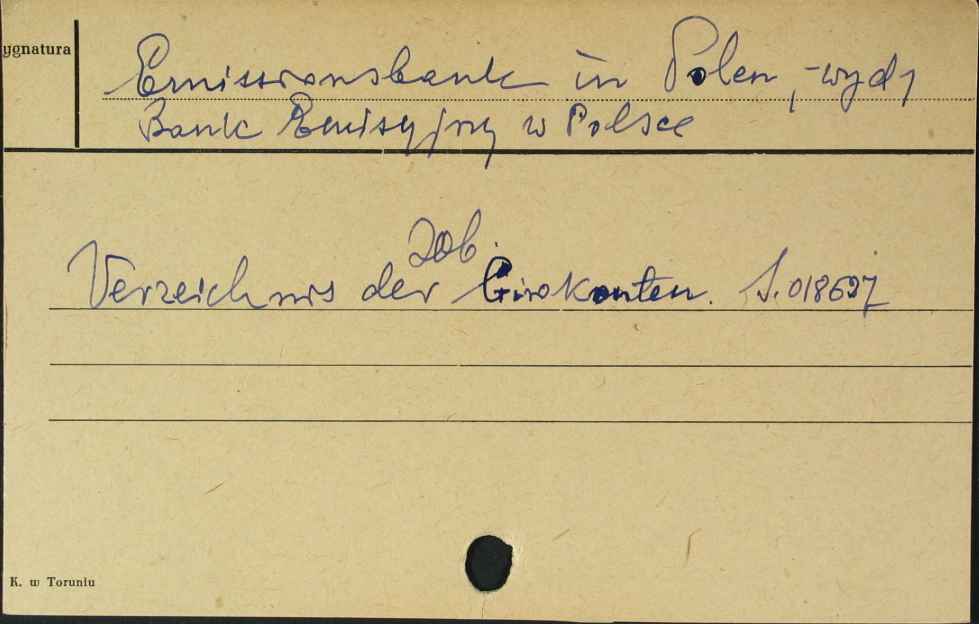 ygnatura
Emissionsbank in Polen, -wyd,
Bank Emisyjny w Polsce
Zob.
Verzeichnis der Girokonten. S. 018697
K. w Toruniu